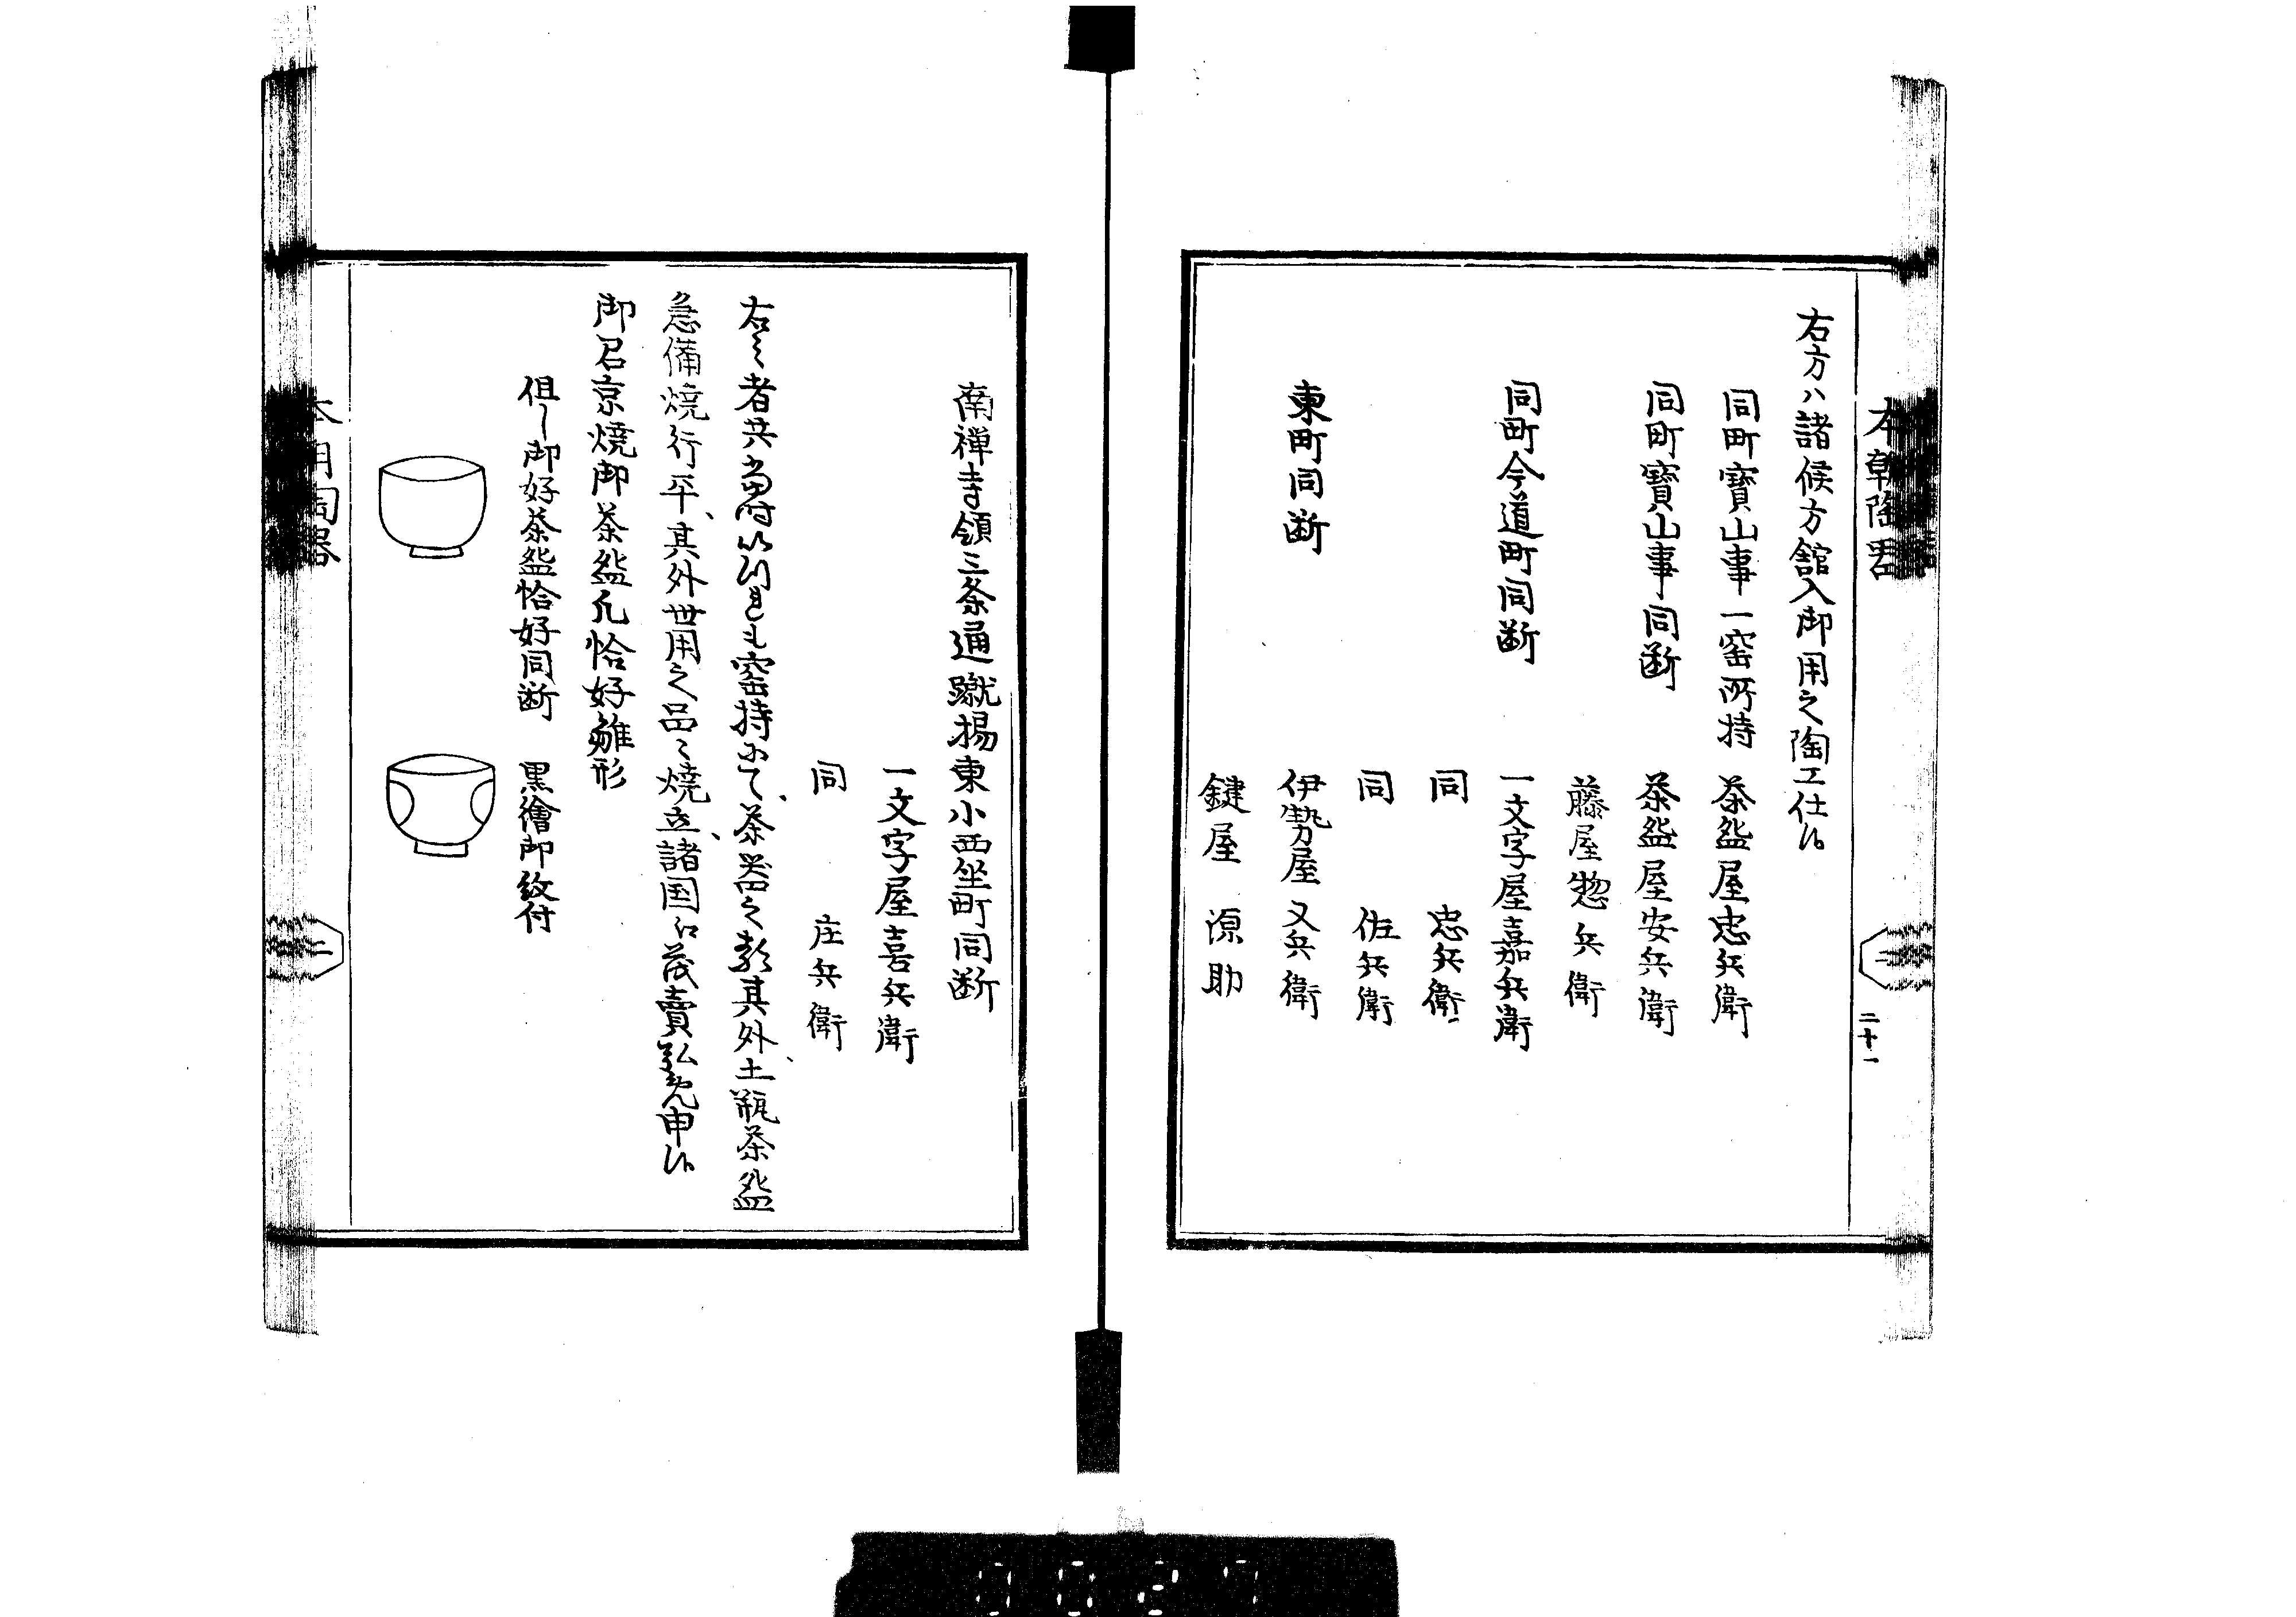 本朝陶器
二十一
右方ハ諸候方舘入御用之陶工仕候
同町寶山事一窑所持　茶盌屋忠兵衛
同町寶山事同断　茶盌屋安兵衛
藤屋惣兵衛
同町今道町同断　一文字屋嘉兵衛
同　忠兵衛
同　佐兵衛
東町同断　伊勢屋又兵衛
鍵屋源助
南禅寺領三条通蹴揚東小西坐町同断
一文字屋喜兵衛
同　庄兵衛
右之者共當時 窑持ニて、茶器之 其外、土瓶茶盌
急備焼行平、其外世用之品〻焼立、諸国江 賣弘 申候
御召京焼御茶盌凡恰好雛形
但シ御好茶盌恰好同断　黒繪御紋付